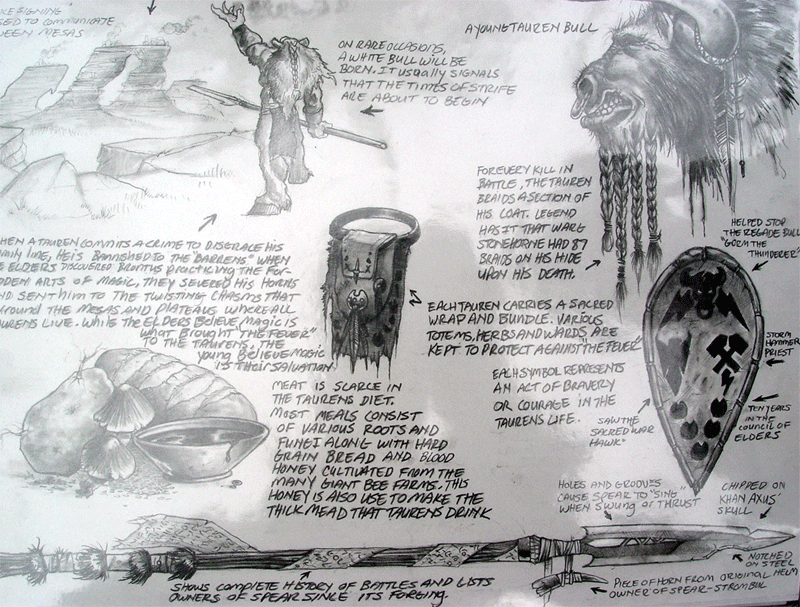 "KE SIGNING"
SED TO COMMUNICATE
WEEN MESAS
ON RARE OCCASIONS,
A WHITE BULL WILL BE
BORN. IT USUALLY SIGNALS
THAT THE TIMES OF STRIFE
ARE ABOUT TO BEGIN
A YOUNG TAUREN BULL
FOR EVERY KILL IN
BATTLE, THE TAUREN
BRAIDS A SECTION OF
HIS COAT. LEGEND
HAS IT THAT WARG
STONEHORNE HAD 87
BRAIDS ON HIS HIDE
UPON HIS DEATH.
HELPED STOP
THE REGADE BULL
"GORM THE
THUNDERER"
HEN A TAUREN COMMITS A CRIME TO DISGRACE HIS
MILY LINE, HE IS BANNISHED TO THE BARRENS" WHEN
E ELDERS DISCOVERED BRONTUS PRACTICING THE FOR-
DDEN ARTS OF MAGIC, THEY SEVERED HIS HORNS
ND SENT HIM TO THE TWISTING CHASMS THAT
ROUND THE MESAS AND PLATEAUS WHERE ALL
URENS LIVE. WHILE THE ELDERS BELIEVE MAGIC IS
WHAT BROUGHT "THE FEVER"
TO THE TAURENS. THE
YOUNG BELIEVE MAGIC
IS THEIR SALVATION
EACH TAUREN CARRIES A SACRED
WRAP AND BUNDLE. VARIOUS
TOTEMS, HERBS AND WARDS ARE
KEPT TO PROTECT AGAINST "THE FEVER"
EACH SYMBOL REPRESENTS
AN ACT OF BRAVERY
OR COURAGE IN THE
TAURENS LIFE.
STORM
HAMMER
PRIEST
SAW THE
SACRED WAR
HAWK"
TEN YEARS
IN THE
COUNCIL OF
ELDERS
MEAT IS SCARCE IN
THE TAURENS DIET.
MOST MEALS CONSIST
OF VARIOUS ROOTS AND
FUNGI ALONG WITH HARD
GRAIN BREAD AND BLOOD
HONEY CULTIVATED FROM THE
MANY GIANT BEE FARMS. THIS
HONEY IS ALSO USE TO MAKE THE
THICK MEAD THAT TAURENS DRINK
HOLES AND GROOVES
CAUSE SPEAR TO "SING"
WHEN SWUNG OR THRUST
CHIPPED ON
KHAN AXUS'
SKULL
NOTCHED
ON STEEL
SHOWS COMPLETE HISTORY OF BATTLES AND LISTS
OWNERS OF SPEAR SINCE ITS FORGING.
PIECE OF HORN FROM ORIGINAL HELM
OWNER OF SPEAR-STROMBUL